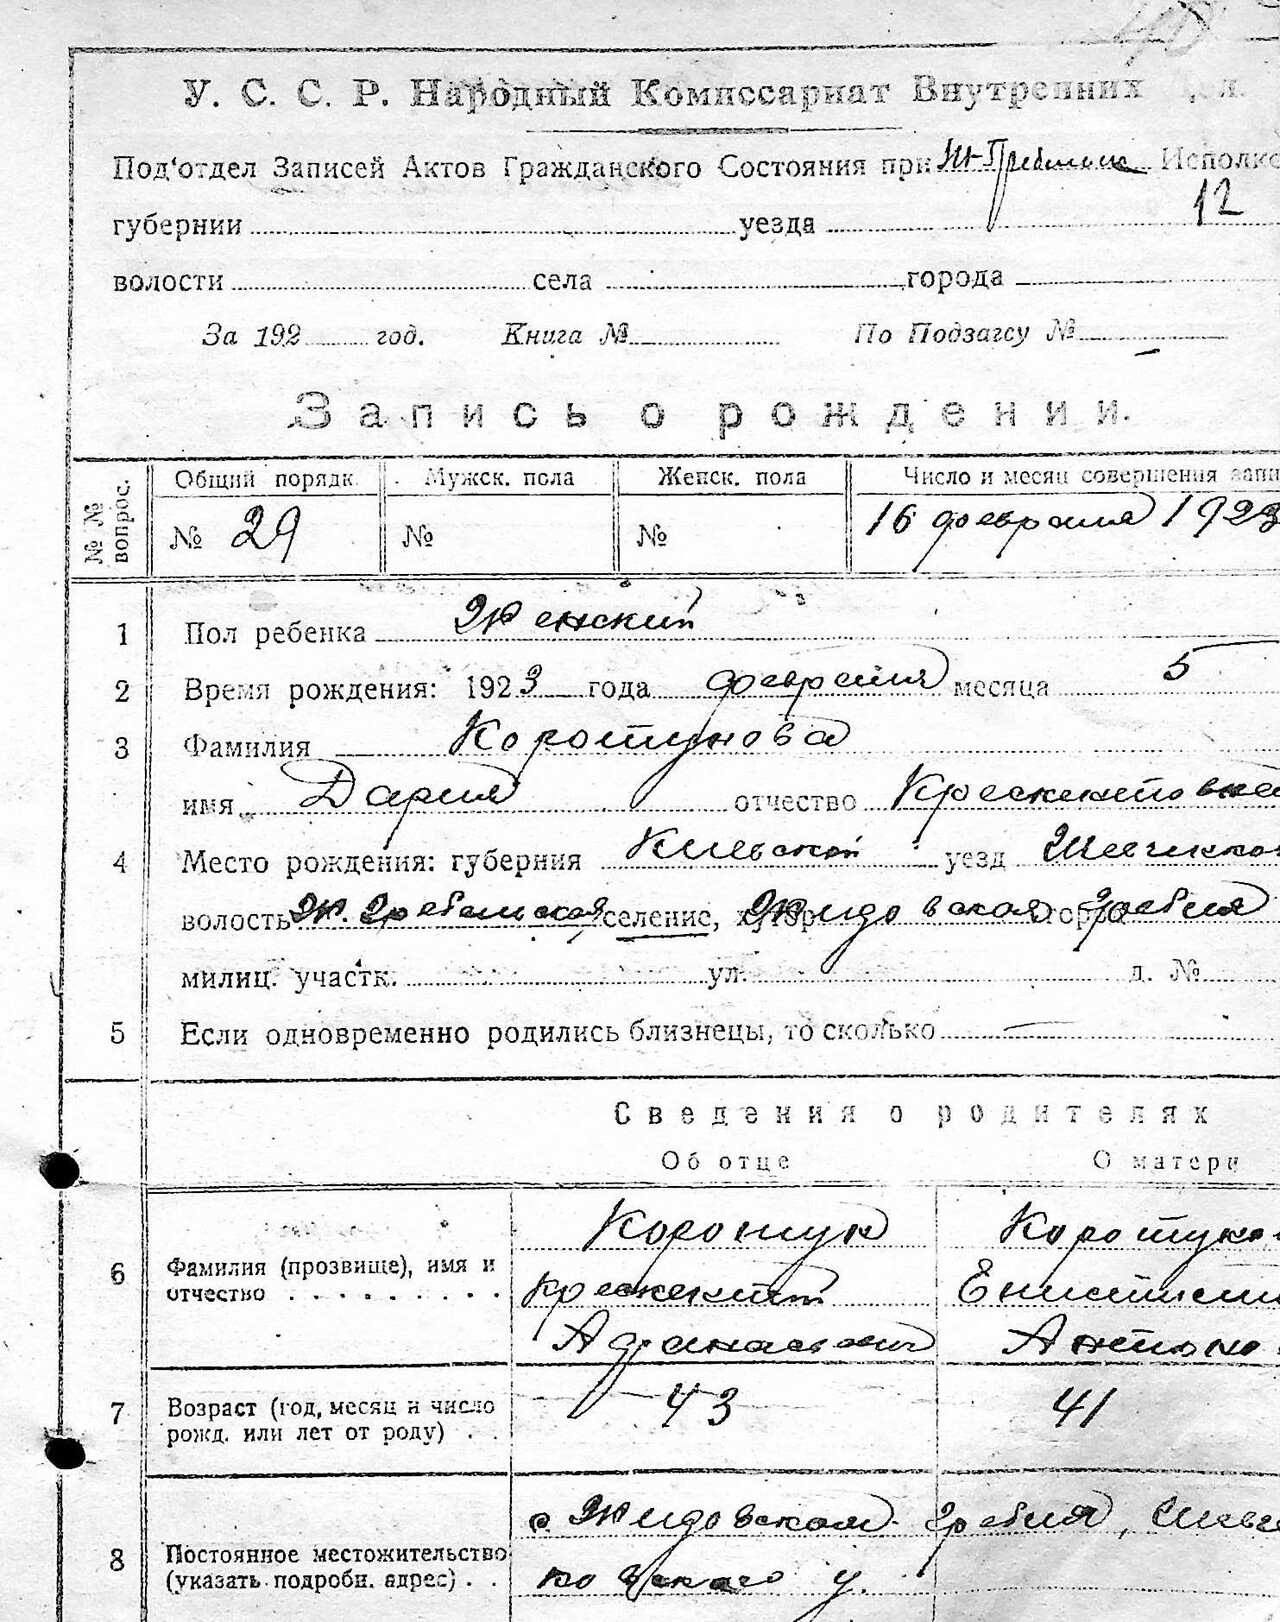 У. С. С. Р. Народный Комиссариат Внутренних Дел.
Под‘отдел Записей Актов Гражданского Состояния при Исполко
губернии уезда 12
волости села города
За 192 год. Книга № По Подзагсу №
Запись о рождении.
№ № вопрос. Общий порядк. Мужск. пола Женск. пола Число и месяц совершения запи
№ 29 № № 16 февраля 1923
1 Пол ребенка Женский
2 Время рождения: 1923 года февраля месяца 5
3 Фамилия Коротунова
имя Дария отчество Крескентовна
4 Место рождения: губерния Киевской уезд
волость Ж. Гребельская селение, хутор Жидовская Гребля
милиц. участк. ул. д. №
5 Если одновременно родились близнецы, то сколько —
Сведения о родителях
Об отце О матери
Коротун Коротуно
6 Фамилия (прозвище), имя и отчество Крескентий
Афанасьевич Антоно
7 Возраст (год, месяц и число рожд. или лет от роду) 43 41
с. Жидовском Гребля,
8 Постоянное местожительство (указать подробн. адрес) у.